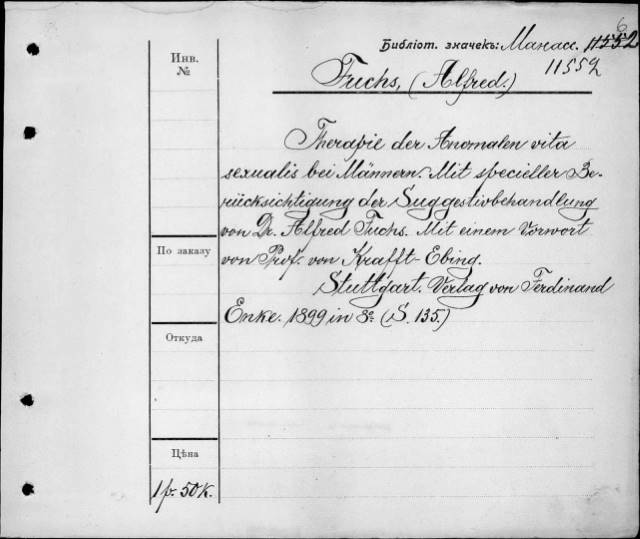 6
Библіот. значекъ: Манасс. 11552
11552
Инв.
№
Fuchs, (Alfred.)
Therapie der Anomalen vita
sexualis bei Männern. Mit specieller Be-
rücksichtigung der Suggestivbehandlung
von Dr. Alfred Fuchs. Mit einem Vorwort
von Prof. von Krafft-Ebing.
Stuttgart. Verlag von Ferdinand
Enke. 1899 in 8º (S. 135.)
По заказу
Откуда
Цѣна
1 р. 50 к.